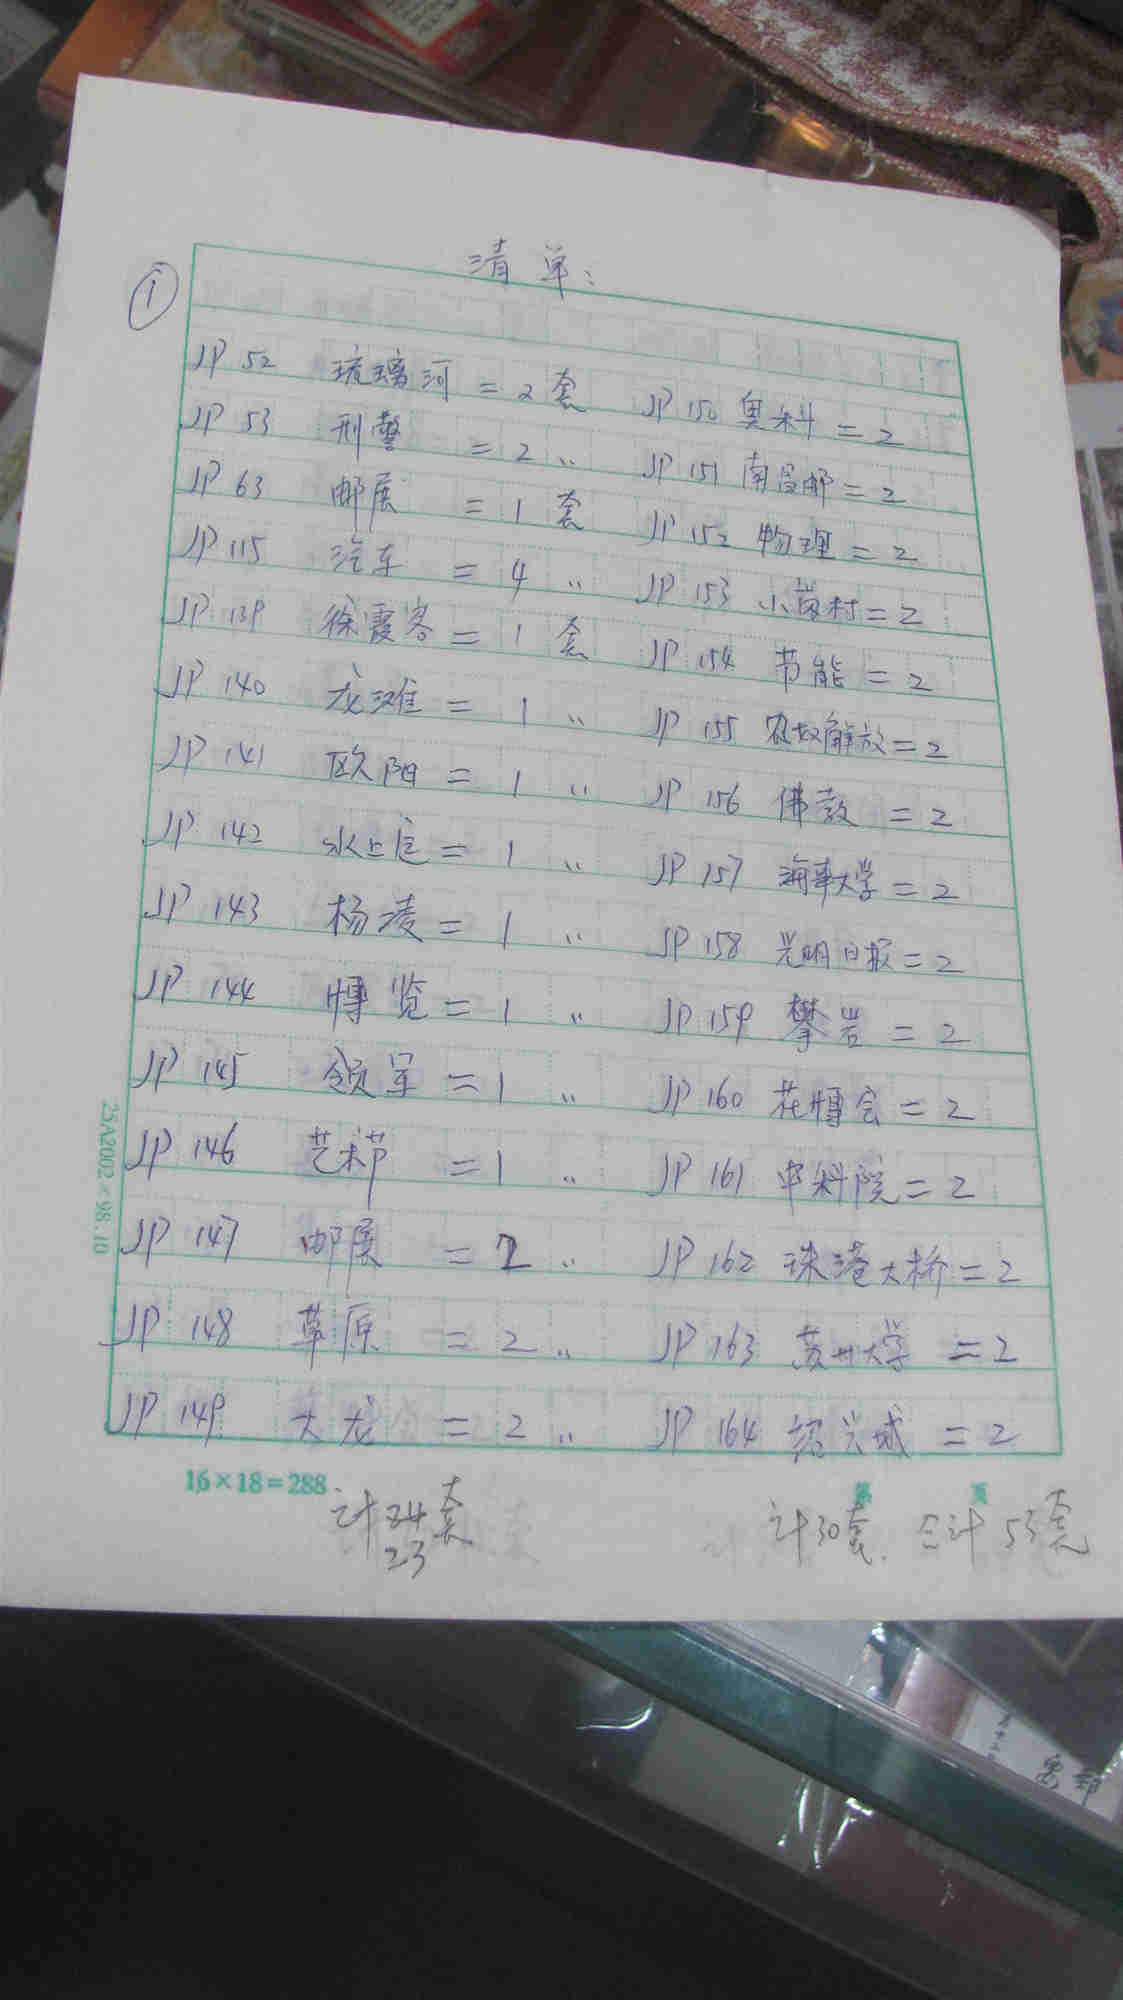 清单:
①
JP 52 琉璃河 = 2 套
JP 53 刑警 = 2 〃
JP 63 邮展 = 1 套
JP 115 汽车 = 4 〃
JP 139 徐霞客 = 1 套
JP 140 龙滩 = 1 〃
JP 141 欧阳 = 1 〃
JP 142 水上 = 1 〃
JP 143 杨凌 = 1 〃
JP 144 博览 = 1 〃
JP 145 领军 = 1 〃
JP 146 艺术节 = 1 〃
JP 147 邮展 = 2 〃
JP 148 草原 = 2 〃
JP 149 大龙 = 2 〃
JP 150 奥科 = 2
JP 151 南昌邮 = 2
JP 152 物理 = 2
JP 153 小岗村 = 2
JP 154 节能 = 2
JP 155 农奴解放 = 2
JP 156 佛教 = 2
JP 157 海事大学 = 2
JP 158 光明日报 = 2
JP 159 攀岩 = 2
JP 160 花博会 = 2
JP 161 中科院 = 2
JP 162 珠港大桥 = 2
JP 163 苏州大学 = 2
JP 164 绍兴城 = 2
25A2002×98.10
16×18=288
第 页
计 套
23
计30套. 合计 53套